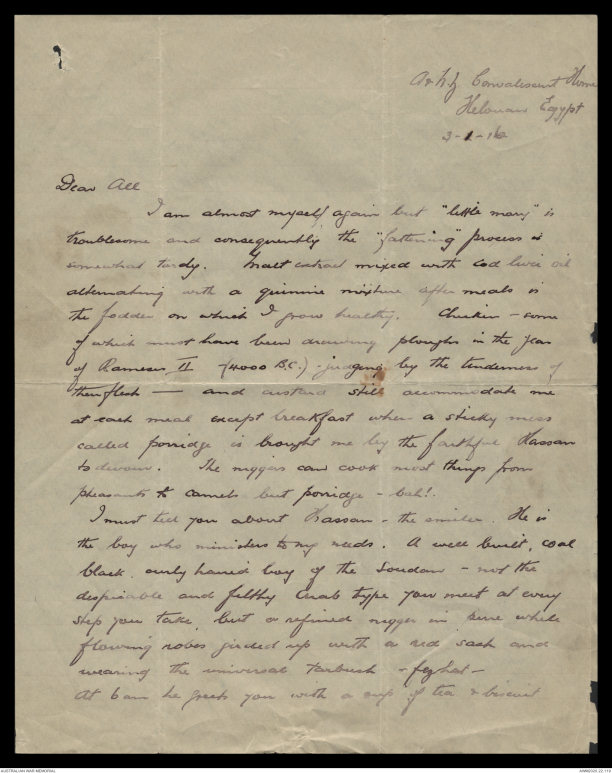 A & N.Z. Convalescent Home
Helouan Egypt
3-1-16
Dear All
I am almost myself again but "little mary" is
troublesome and consequently the "fattening" process is
somewhat tardy. Malt extract mixed with Cod liver oil
alternating with a quinine mixture after meals is
the fodder on which I grow healthy. Chicken - some
of which must have been drawing ploughs in the year
of Rameses II (4000 B.C.) - judging by the tenderness of
their flesh - and custard still accommodate me
at each meal except breakfast when a sticky mess
called porridge is brought me by the faithful Hassan
to devour. The niggers can cook most things from
pheasants to camels but porridge - bah!.
I must tell you about Hassan - the smiler. He is
the boy who ministers to my needs. A well built, coal
black, curly haired boy of the Soudan - not the
despicable and filthy Arab type you meet at every
step you take, but a refined nigger in pure white
flowing robes girded up with a red sash and
wearing the universal tarbush - fez hat -
At 6 am he greets you with a cup of tea & biscuit
AUSTRALIAN WAR MEMORIAL